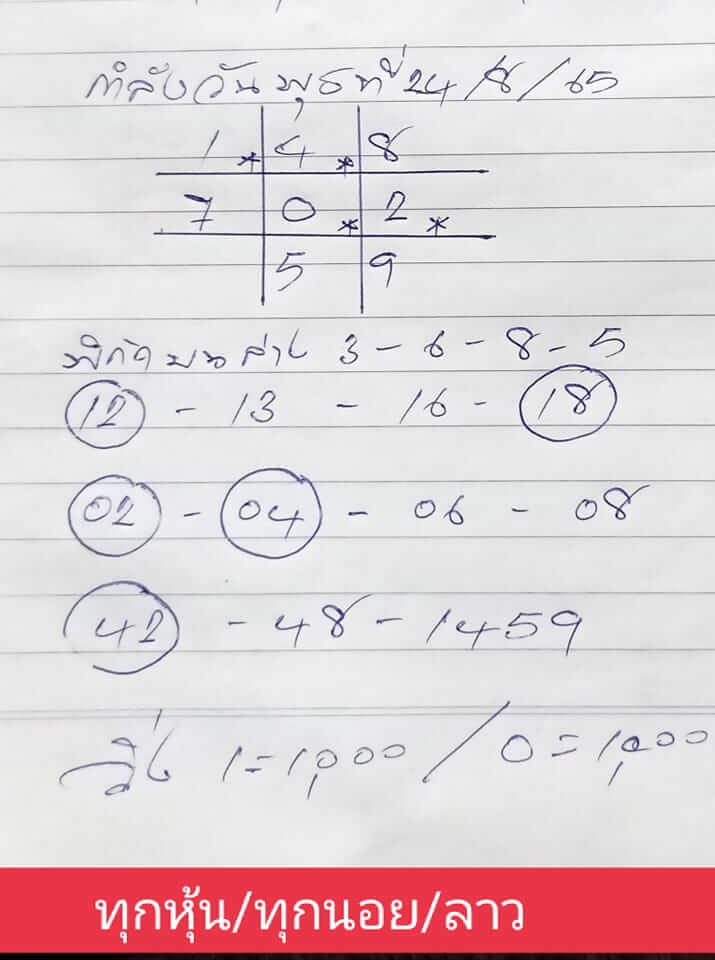 กำลังวันพุธที่ 24/8/65
1 * 4 * 8
7 0 * 2 *
5 9
พิกัดบนล่าง 3 - 6 - 8 - 5
12 - 13 - 16 - 18
02 - 04 - 06 - 08
42 - 48 - 1459
วิ่ง 1 = 1,000 / 0 = 1,000
ทุกหุ้น/ทุกนอย/ลาว